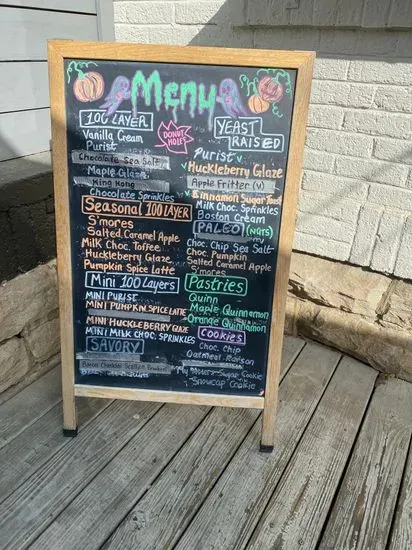 Menu
100 LAYER
Vanilla Cream
Purist
Chocolate Sea Salt
Maple Glaze
King Kong
Chocolate Sprinkles
Seasonal 100 LAYER
S'mores
Salted Caramel Apple
Milk Choc. Toffee
Huckleberry Glaze
Pumpkin Spice Latte
Mini 100 Layers
MINI PURIST
MINI PUMPKIN SPICE LATTE
MINI HUCKLEBERRY GLAZE
MINI MILK CHOC. SPRINKLES
SAVORY
DONUT HOLES
YEAST RAISED
Purist
Huckleberry Glaze
Apple Fritter (V)
Cinnamon Sugar Toast
Milk Choc. Sprinkles
Boston Cream
PALEO (NUTS)
Choc. Chip Sea Salt
Choc. Pumpkin
Salted Caramel Apple
S'mores
Pastries
Quinn
Maple Quinnamon
Orange Quinnamon
Cookies
Choc. Chip
Oatmeal Raisin
Sugar Cookie
Snowcap Cookie